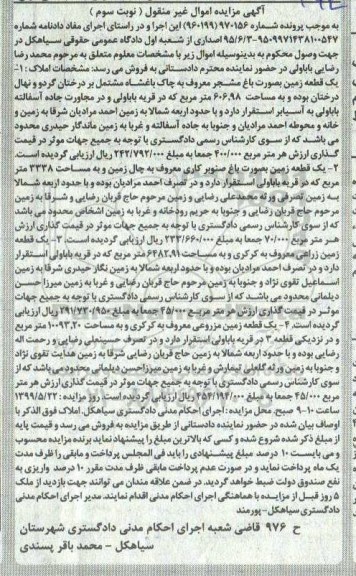 آگهی مزایده اموال غیر منقول ( نوبت سوم )
به موجب پرونده شماره ۹۷۰۱۵۶ (۹۶۰۱۹۹) این اجرا و در راستای اجرای مفاد دادنامه شماره
۹۵۰۹۹۷۱۴۳۸۱۰۰۵۴۷-۹۵/۶/۳ اصداری از شعبه اول دادگاه عمومی حقوقی سیاهکل در
جهت وصول محکوم به بدینوسیله اموال زیر با مشخصات معلوم متعلق به مرحوم محمد رضا
رضایی باباولی در حضور نماینده محترم دادستانی به فروش می رسد: مشخصات املاک : ۱-
یک قطعه زمین بصورت باغ مشجر معروف به چاک باغشاه مشتمل بر درختان گردو و نهال
درختان بوده و به مساحت ۶۰۶،۹۸ متر مربع که در قریه باباولی و در مجاورت جاده آسفالته
باباولی به آسیابر استقرار دارد و با حدود اربعه شمالا به زمین احمد مرادیان شرقا به زمین و
خانه و محوطه احمد مرادیان و جنوبا به جاده آسفالته و غربا به زمین ماندگار حیدری محدود
می باشد که از سوی کارشناس رسمی دادگستری با توجه به جمیع جهات موثر در قیمت
گذاری ارزش هر متر مربع ۴۰۰/۰۰۰ جمعا به مبلغ ۲۴۲/۷۹۲/۰۰۰ ریال ارزیابی گردیده است.
۲- یک قطعه زمین بصورت باغ صنوبر کاری معروف به چال زمین و به مساحت ۳۳۳۸ متر
مربع که در قریه باباولی استقرار دارد و در تصرف احمد مرادیان بوده و با حدود اربعه شمالا
به زمین تصرفی ورثه محمدعلی رضایی و زمین مرحوم حاج قربان رضایی و شرقا به زمین
مرحوم حاج قربان رضایی و جنوبا به حریم رودخانه و غربا به زمین اشخاص محدود می باشد
که از سوی کارشناس رسمی دادگستری با توجه به جمیع جهات موثر در قیمت گذاری ارزش
هر متر مربع ۷۰/۰۰۰ جمعا به مبلغ ۲۳۳/۶۶۰/۰۰۰ ریال ارزیابی گردیده است. ۳- یک قطعه
زمین زراعی معروف به کرکری و به مساحت ۶۴۸۲،۹۱ متر مربع که در قریه باباولی استقرار
دارد و در تصرف احمد مرادیان بوده و با حدود اربعه شمالا به زمین نگار حیدری شرقا به زمین
اسماعیل تقوی نژاد و جنوبا به زمین مرحوم حاج قربان رضایی و غربا به زمین میرزا حسن
دیلمانی محدود می باشد که از سوی کارشناس رسمی دادگستری با توجه به جمیع جهات
موثر در قیمت گذاری ارزش هر متر مربع ۴۵/۰۰۰ جمعا به مبلغ ۲۹۱/۷۳۰/۹۵۰ ریال ارزیابی
گردیده است. ۴- یک قطعه زمین مزروعی معروف به کرکری و به مساحت ۱۰۰۹۳،۲۰ متر مربع
و در نزدیکی قطعه ۳ در قریه باباولی استقرار دارد و در تصرف حسینعلی رضایی و رحمت اله
رضایی بوده و با حدود اربعه شمالا به زمین حاج قربان رضایی شرقا به زمین هدایت تقوی نژاد
و جنوبا به زمین ورثه گلعلی تیمارش و غربا به زمین میرزاحسن دیلمانی محدود می باشد که از
سوی کارشناس رسمی دادگستری با توجه به جمیع جهات موثر در قیمت گذاری ارزش هر متر
مربع ۴۵/۰۰۰ جمعا به مبلغ ۴۵۴/۱۹۴/۰۰۰ ریال ارزیابی گردیده است روز مزایده : ۱۳۹۹/۵/۲۲
ساعت ۱۰-۹ صبح. محل مزایده: اجرای احکام مدنی دادگستری سیاهکل. املاک فوق الذکر با
اوصاف بیان شده در حضور نماینده دادستانی از طریق مزایده به فروش می رسد و قیمت پایه
از مبلغ ذکر شده شروع شده و کسی که بالاترین مبلغ را پیشنهاد نماید برنده مزایده محسوب
و می بایست ۱۰ درصد مبلغ پیشنهادی را باید فی المجلس پرداخت و مابقی را ظرف مدت
یک ماه پرداخت نماید و در صورت عدم پرداخت مابقی ظرف مدت مقرر ۱۰ درصد واریزی به
نفع صندوق دولت ضبط خواهد گردید. در ضمن علاقه مندان می توانند جهت بازدید از ملک
۵ روز قبل از مزایده با هماهنگی اجرای احکام مدنی اقدام نمایند. مدیر اجرای احکام مدنی
دادگستری سیاهکل-پورمند
ح ۹۷۶ قاضی شعبه اجرای احکام مدنی دادگستری شهرستان
سیاهکل - محمد باقر پسندی